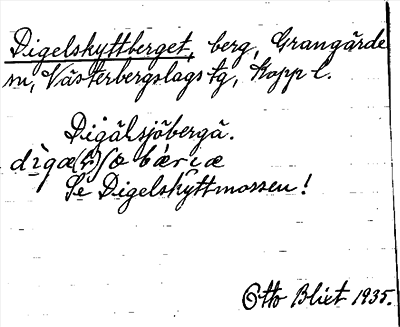 Digelskyttberget, berg, Grangärde
sn, Västerbergslags tg, Kopp l.
Digäḷsjöbergä.
Se Digelskyttmossen!
Otto Blixt 1935.